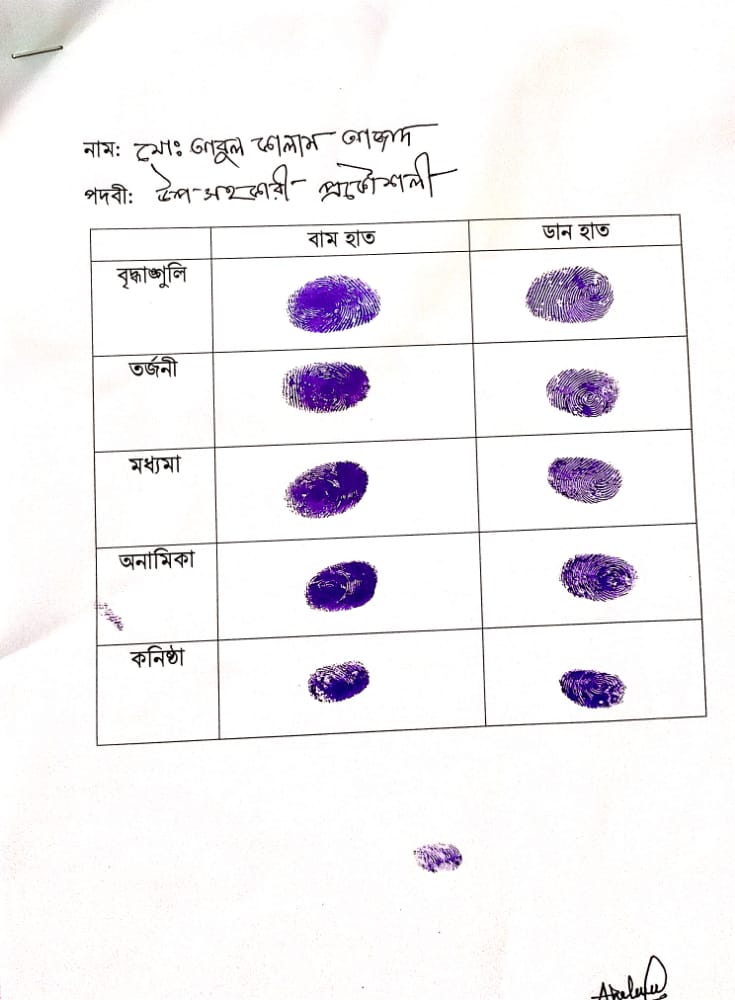 নাম: মোঃ আবুল কালাম আজাদ
পদবী: উপ-সহকারী প্রকৌশলী
বাম হাত ডান হাত
বৃদ্ধাঙ্গুলি
তর্জনী
মধ্যমা
অনামিকা
কনিষ্ঠা